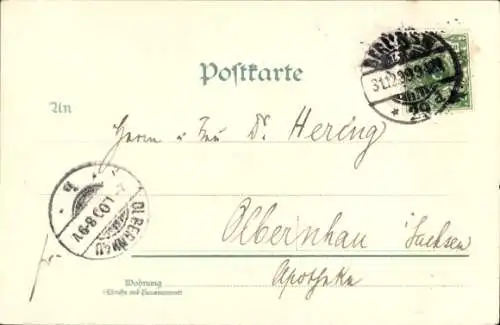 BERLIN S.W.
31.12.99.9-10N.
Postkarte
An
Herrn u Frau Dr. Hering
OLBERNHAU
1.00.8-9V.
b
Olbernhau Sachsen
Apotheke
Wohnung
(Straße und Hausnummer)